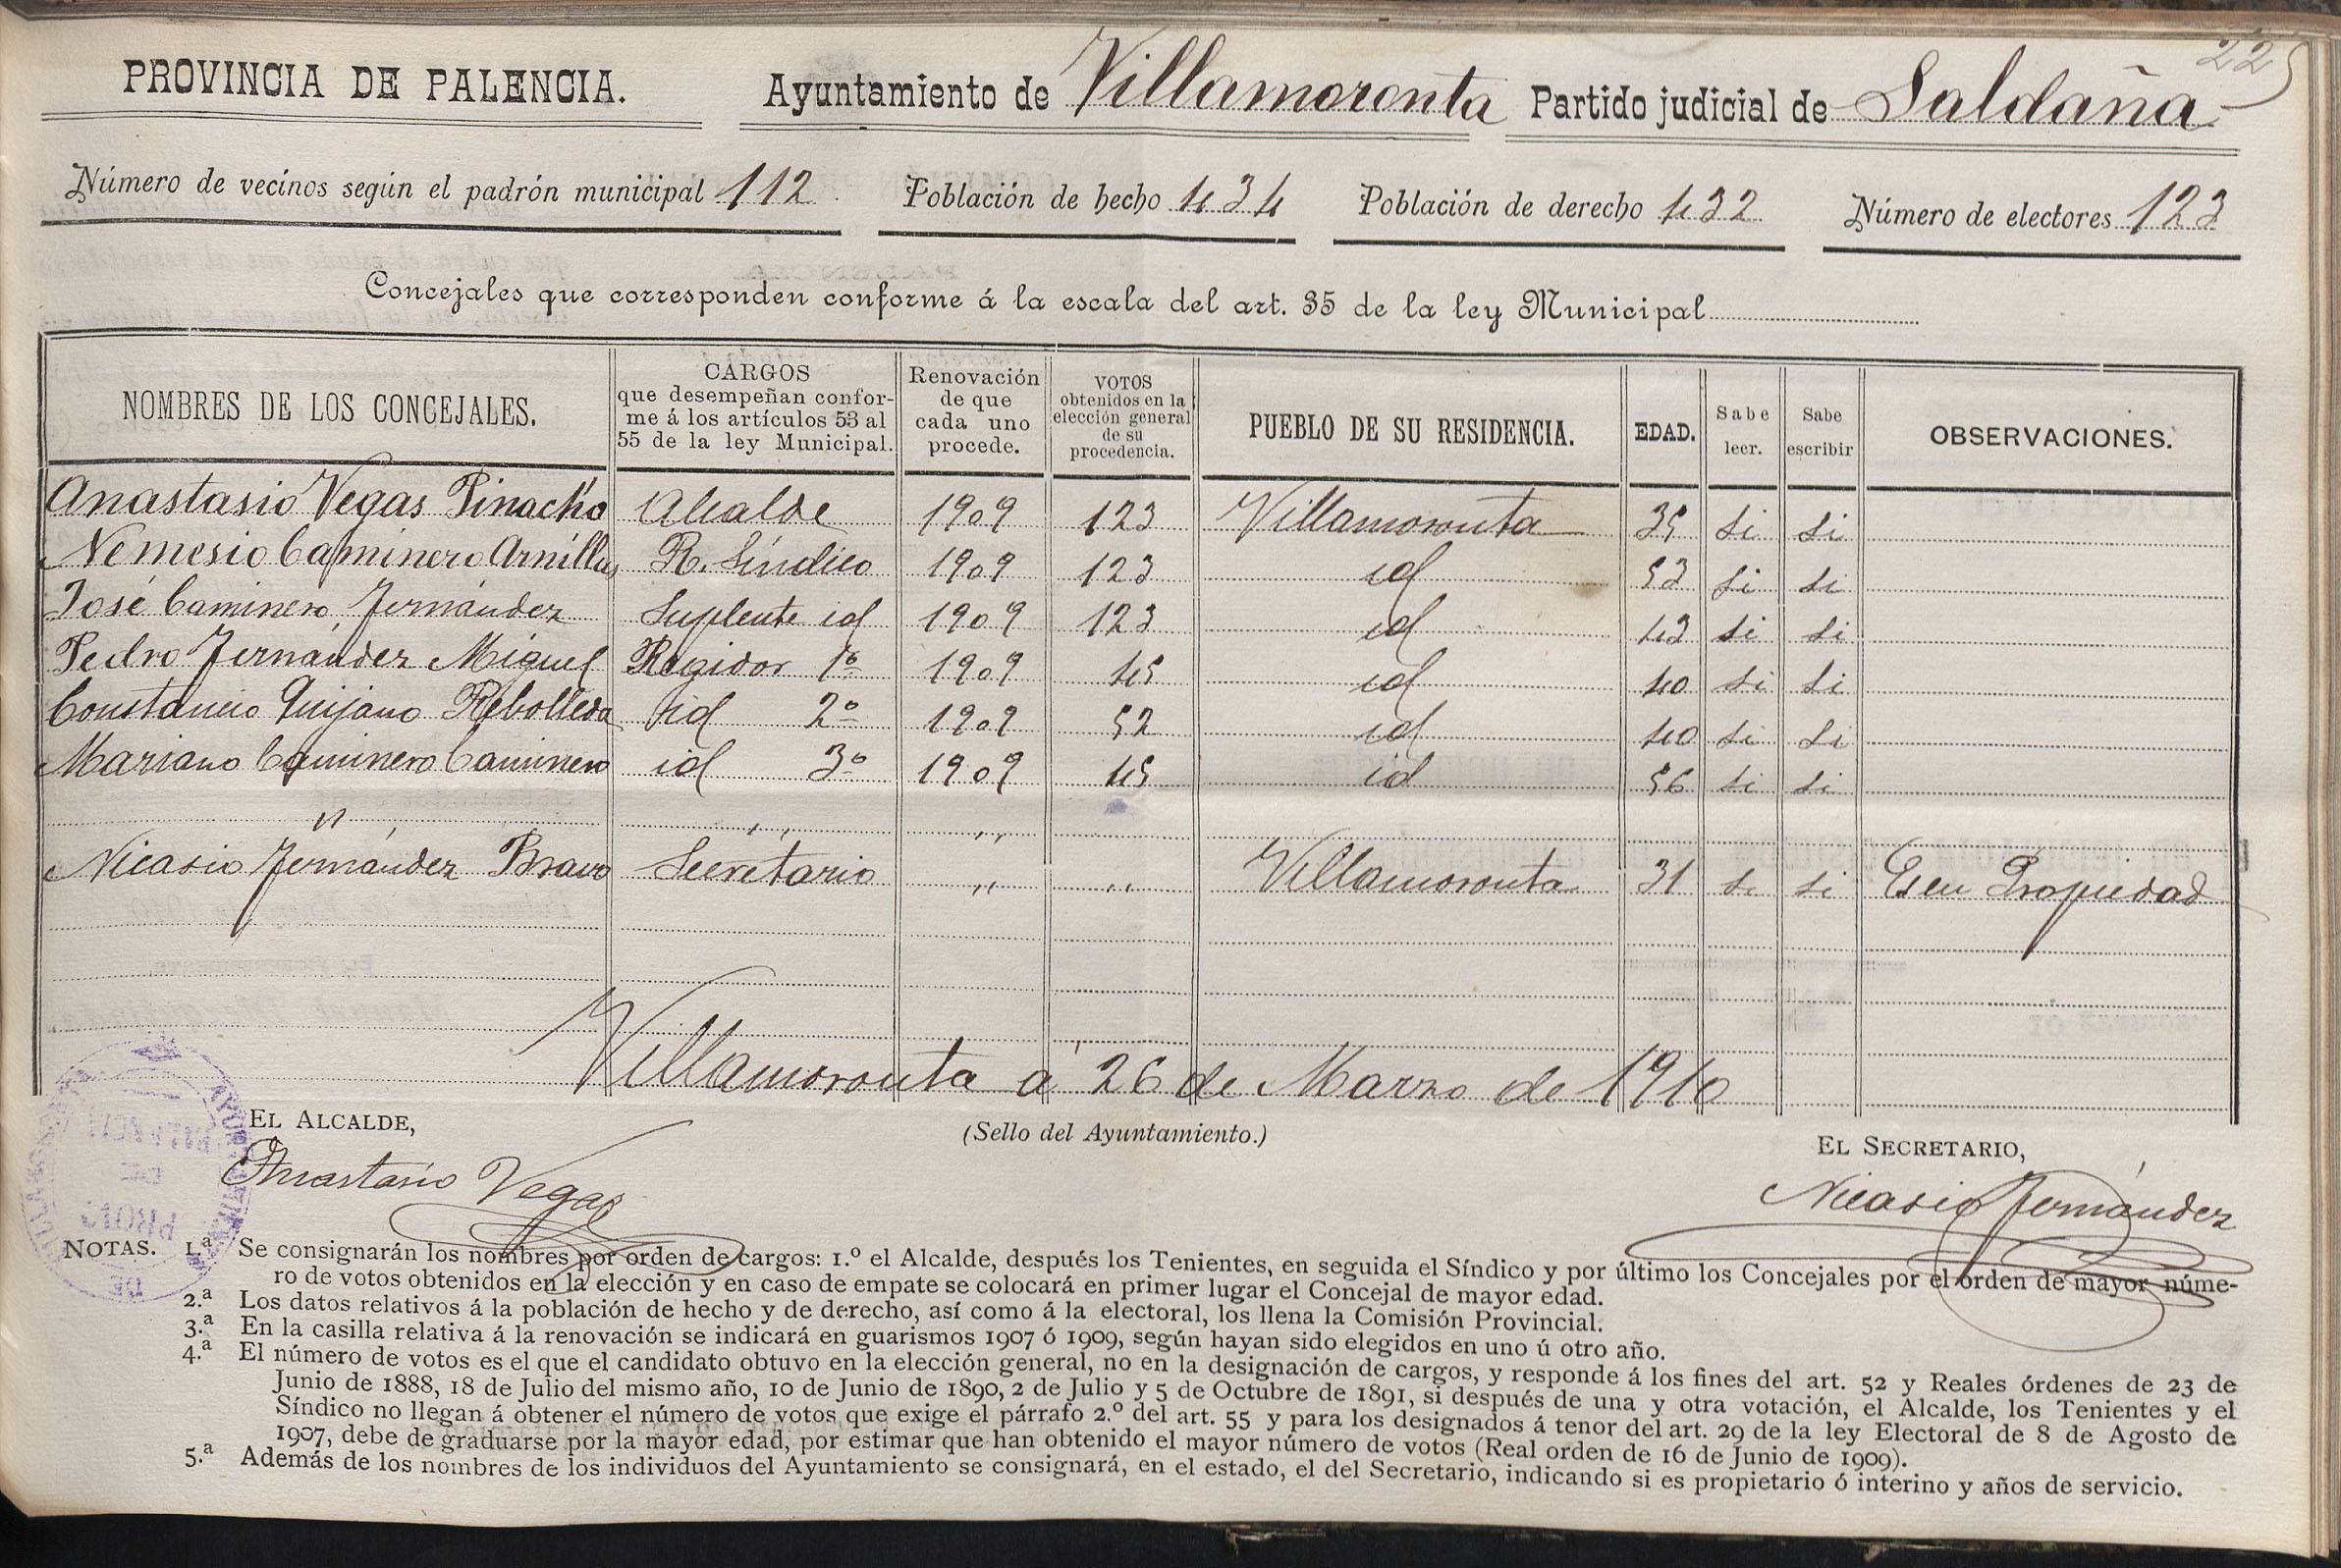 225
PROVINCIA DE PALENCIA. Ayuntamiento de Villamoronta Partido judicial de Saldaña
Número de vecinos según el padrón municipal 112 Población de hecho 434 Población de derecho 432 Número de electores 123
Concejales que corresponden conforme á la escala del art. 35 de la ley Municipal
NOMBRES DE LOS CONCEJALES. CARGOS que desempeñan confor- me á los artículos 53 al 55 de la ley Municipal. Renovación de que cada uno procede. VOTOS obtenidos en la elección general de su procedencia. PUEBLO DE SU RESIDENCIA. EDAD. Sabe leer. Sabe escribir OBSERVACIONES.
Anastasio Vegas Pinacho Alcalde 1909 123 Villamoronta 35 si si
Nemesio Caminero Arnillas R. Síndico 1909 123 id 53 si si
José Caminero Fernández Suplente id 1909 123 id 43 si si
Pedro Fernández Miguel Regidor 1º 1909 45 id 40 si si
Constancio Quijano Rebolleda id 2º 1909 52 id 40 si si
Mariano Caminero Caminero id 3º 1909 45 id 56 si si
" " "
Nicasio Fernández Bravo Secretario " " Villamoronta 31 si si Es en Propiedad
Villamoronta á 26 de Marzo de 1910
EL ALCALDE, (Sello del Ayuntamiento.) EL SECRETARIO,
Anastasio Vegas Nicasio Fernández
NOTAS. 1.ª Se consignarán los nombres por orden de cargos: 1.º el Alcalde, después los Tenientes, en seguida el Síndico y por último los Concejales por el orden de mayor núme-
ro de votos obtenidos en la elección y en caso de empate se colocará en primer lugar el Concejal de mayor edad.
2.ª Los datos relativos á la población de hecho y de derecho, así como á la electoral, los llena la Comisión Provincial.
3.ª En la casilla relativa á la renovación se indicará en guarismos 1907 ó 1909, según hayan sido elegidos en uno ú otro año.
4.ª El número de votos es el que el candidato obtuvo en la elección general, no en la designación de cargos, y responde á los fines del art. 52 y Reales órdenes de 23 de
Junio de 1888, 18 de Julio del mismo año, 10 de Junio de 1890, 2 de Julio y 5 de Octubre de 1891, si después de una y otra votación, el Alcalde, los Tenientes y el
Síndico no llegan á obtener el número de votos que exige el párrafo 2.º del art. 55 y para los designados á tenor del art. 29 de la ley Electoral de 8 de Agosto de
1907, debe de graduarse por la mayor edad, por estimar que han obtenido el mayor número de votos (Real orden de 16 de Junio de 1909).
5.ª Además de los nombres de los individuos del Ayuntamiento se consignará, en el estado, el del Secretario, indicando si es propietario ó interino y años de servicio.